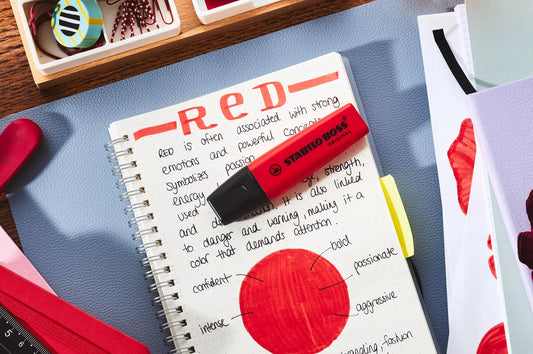 RED
RED is often associated with strong
emotions and powerful concepts
symbolizes passion
energy
used strength,
and It is also linked
to danger and warning, making it a
color that demands attention.
STABILO BOSS
ORIGINAL
bold
confident
passionate
intense
aggressive
fashion